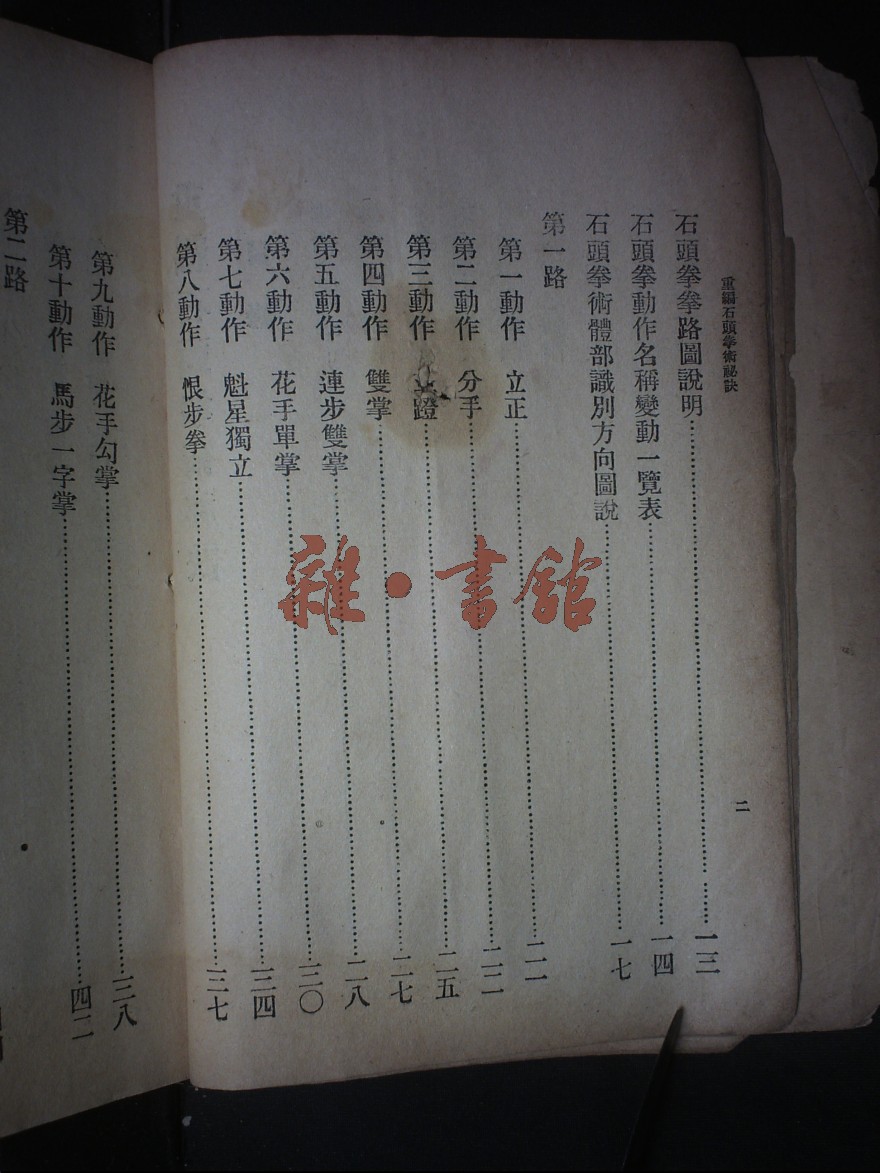 重編石頭拳術祕訣
二
石頭拳拳路圖說明……一三
石頭拳動作名稱變動一覽表……一四
石頭拳術體部識別方向圖說……一七
第一路
第一動作 立正……二一
第二動作 分手……二二
第三動作 蹬……二五
第四動作 雙掌……二七
第五動作 連步雙掌……二八
第六動作 花手單掌……三〇
第七動作 魁星獨立……三四
第八動作 恨步拳……三七
第九動作 花手勾掌……三八
第十動作 馬步一字掌……四二
第二路
雜·書館